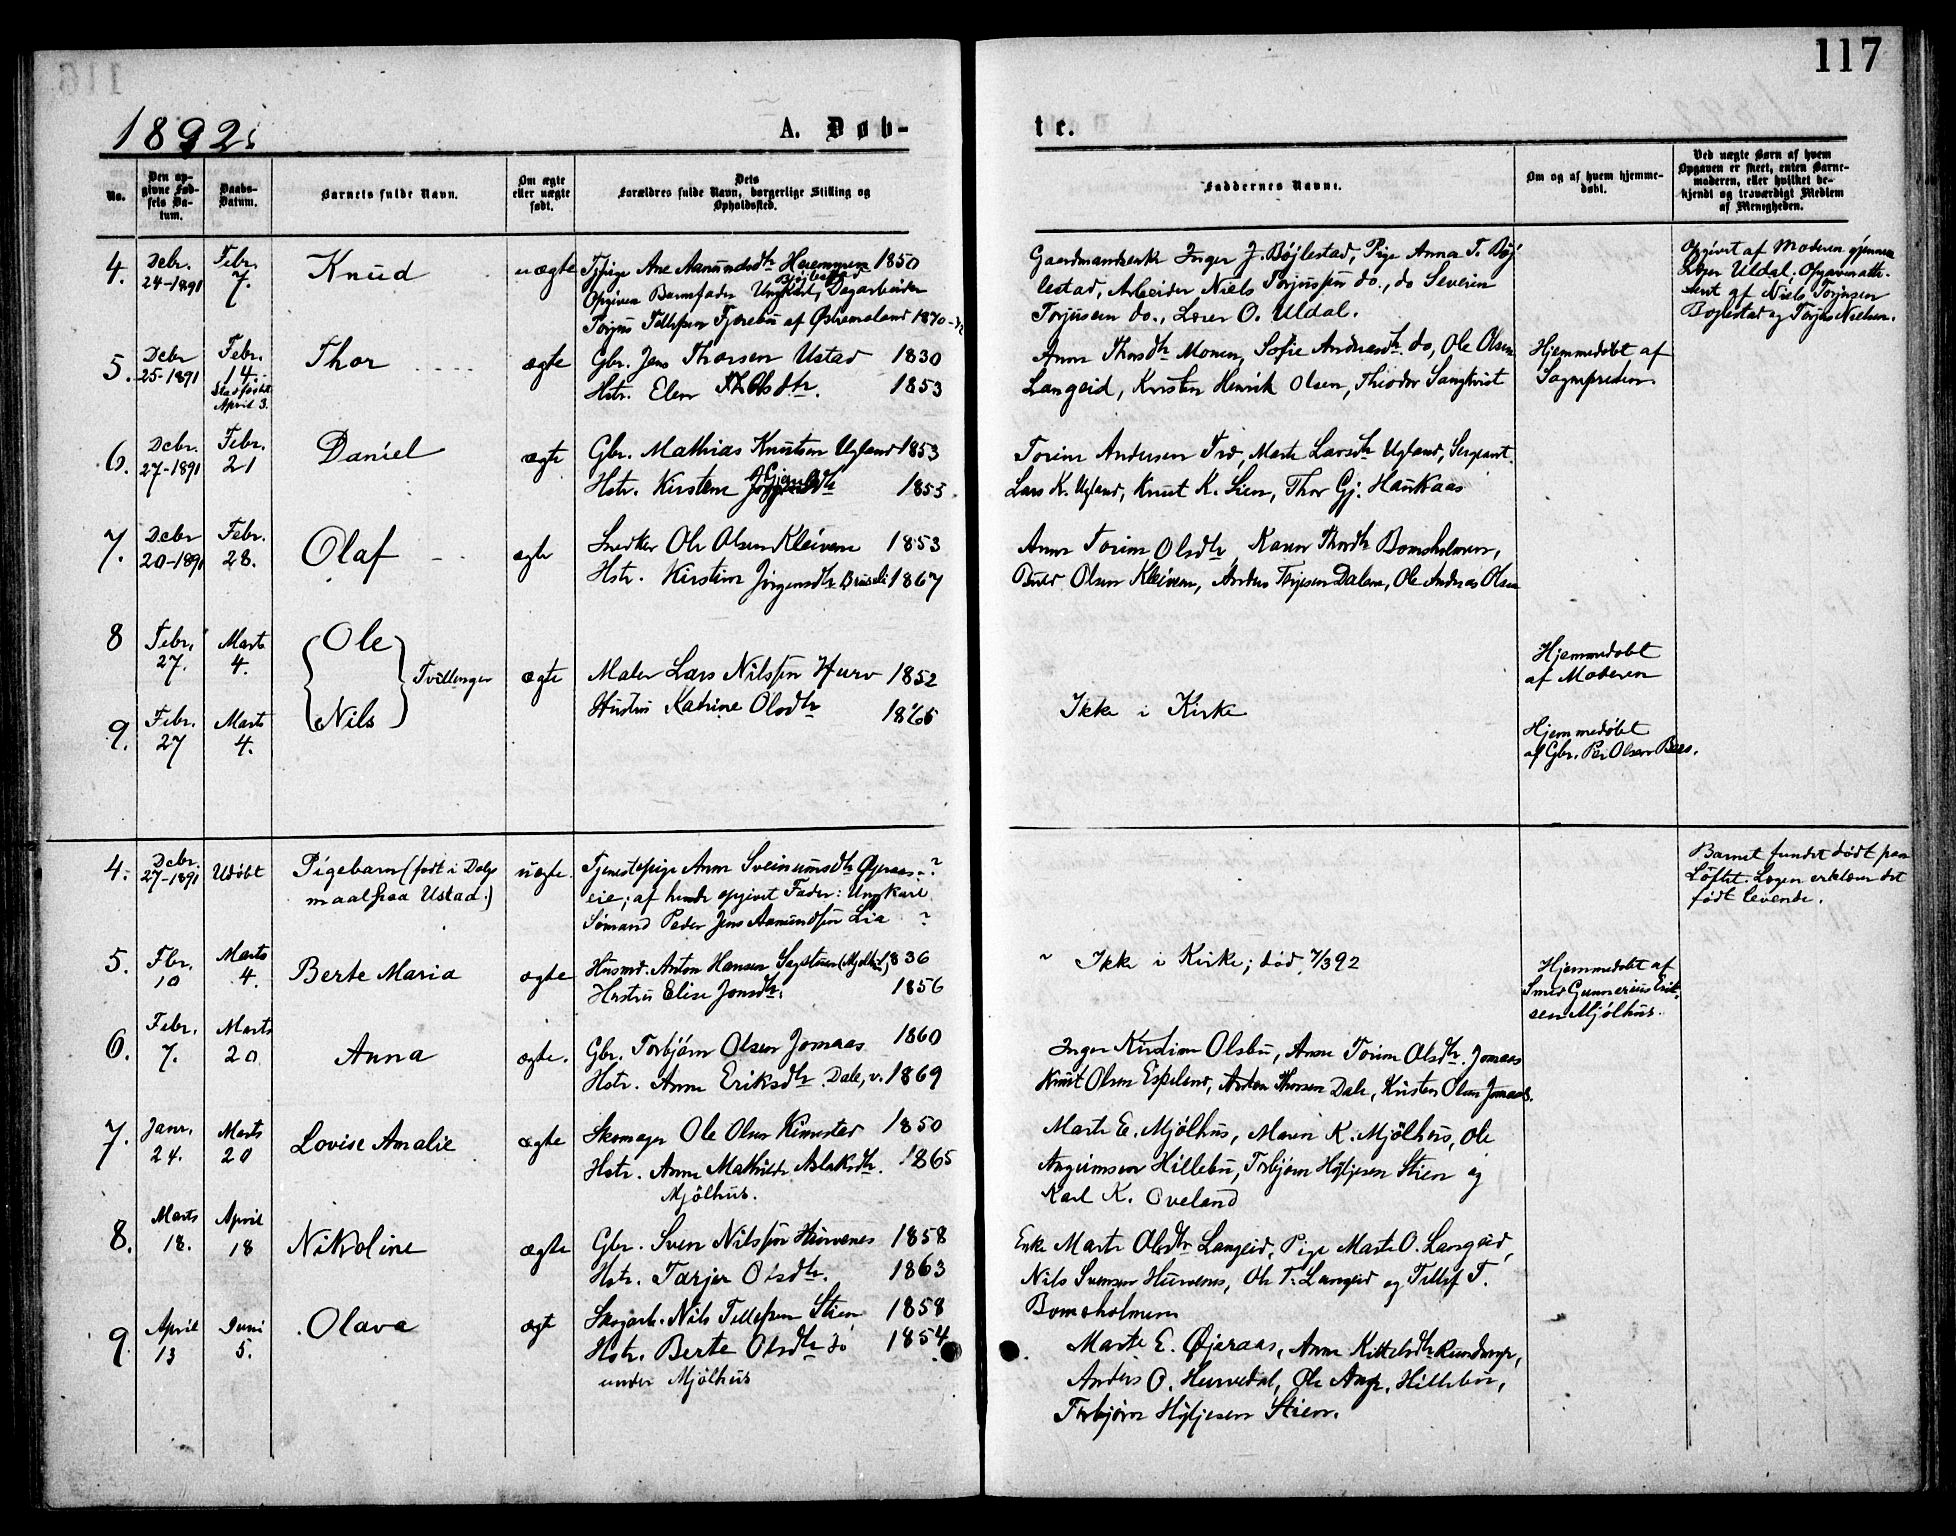 117
1892.
A. Døb-
te.
No.
Den op-
givne Fød-
sels Da-
tum.
Daabs-
Datum.
Barnets fulde Navn.
Om ægte
eller uægte
født.
Dets
Forældres fulde Navn, borgerlige Stilling og
Opholdssted.
Faddernes Navne.
Om og af hvem hjemme-
døbt.
Ved uægte Børn af hvem
Opgaven er skeet, enten Barne-
moderen, eller hvilket be-
kjendt og troværdigt Medlem
af Menigheden.
4.
Debr.
24-1891
Febr.
7.
Knud
uægte
Tjpige Ane Aanundsdtr 1850
Bøjlestad
Opgiven Barnefader Ungkarl, Dagarbeider
Torjus Tellefsen Tjærebu af Østremoland 1870
Gaardmandsenke Inger J. Bøjlestad, Pige Anna T. Bøj
lestad, Arbeider Niels Torjussen do., do Severin
Torjussen do., Lærer O. Uldal.
Opgivet af Moderen gjennem
Lærer Uldal. Opgaven atte-
steret af Niels Torjusen
Bøjlestad og Torjus Nielsen.
5.
Debr
25-1891
Febr.
14.
Stadfæstet
April 3.
Thor
ægte
Gbr. Jens Thorsen Ustad 1830
Hstr. Elen Olsdtr. 1853
Anne Thorsdtr Monen, Sofie Andreasdtr. do, Ole Olsen
Langeid, Kristen Henrik Olsen, Theodor Sangkvist
Hjemmedøbt af
Sognepresten.
6.
Debr.
27-1891
Febr.
21
Daniel
ægte
Gbr. Mathias Knutsen Ugland 1853
Hstr. Kirstene 1853.
Torine Andersen Træ, Marte Larsdtr Ugland, Sergeant
Lars K. Ugland, Knut K. Lien, Thor Gj. Haukaas
7.
Debr
20-1891
Febr.
28.
Olaf
ægte
Snedker Ole Olsen Kleivene 1853
Hstr. Kirstine Jørgensdtr Bruseli 1867
Anne Torine Olsdtr, Karen Thorsdtr Bomsholmen,
Olsen Kleiven, Anders Terjesen Dalene, Ole Andreas Olsen
8
Febr.
27.
Marts
4.
Ole
Tvillinger
ægte
Maler Lars Nilssen Hurv 1852
Hustru Katrine Olsdtr 1865
Ikke i Kirke
Hjemmedøbt
af Moderen
9.
Febr.
27
Marts
4.
Nils
Hjemmedøbt
af Gbr. Per Olsen Baas.
4.
Debr.
27-1891
Udøbt
Pigebarn (født i Dølgs
maal paa Ustad.)
uægte.
Tjenestepige Anne Sveinumsdtr Øjeraas- ?
eie; af hende opgivet Fader: Ungkarl
Sømand Peder Jens Aamundsen Lia ?
Barnet fundet dødt paa
Løftet. Lægen erklærer det
født levende.
5.
Fbr.
10
Marts
4.
Berte Maria
ægte
Husmd. Anton Hansen Sagstuen (Mjølhus) 1836
Hustru Elise Jonsdtr. 1856
Ikke i Kirke; død 7/3 92
Hjemmedøbt af
Smed Gunnerius Erik-
sen Mjølhus.
6.
Febr.
7.
Marts
20
Anna
ægte.
Gbr. Torbjørn Olsen Jomaas 1860
Hstr. Anne Eriksdtr. Dale, v. 1869
Inger Kirstine Olsbu, Anne Torine Olsdtr. Jomaas
Knut Olsen Espeland, Anton Thorsen Dale, Kristen Olsen Jomaas.
7.
Janr.
24.
Marts
20
Lovise Amalie
ægte
Skomager Ole Olsen Rimestad 1850
Hstr. Anne Mathilde Aslaksdtr. 1865
Mjølhus.
Marte E. Mjølhus, Maren K. Mjølhus, Ole
Angrimsen Hillebu, Torbjørn Høljesen Stien og
Karl K. Oveland
8.
Marts
18.
April
18
Nikoline
ægte
Gbr. Sven Nilssen Hurvenes 1858
Hstr. Tarjer Olsdtr. 1863
Enke Marte Olsdtr Langeid, Pige Marte O. Langeid,
Nils Svensen Hurvenes, Ole T. Langeid og Tellef T.
Bomsholmen
9
April
13
Juni
5.
Olava
ægt
Skogarb. Nils Tellefsen Stien 1858
Hstr. Berte Olsdtr do 1854
under Mjølhus
Marte E. Øjeraas, Anne Kittelsdtr
Anders O. Hurvedal, Ole Angr. Hillebu,
Torbjørn Høljesen Stien.